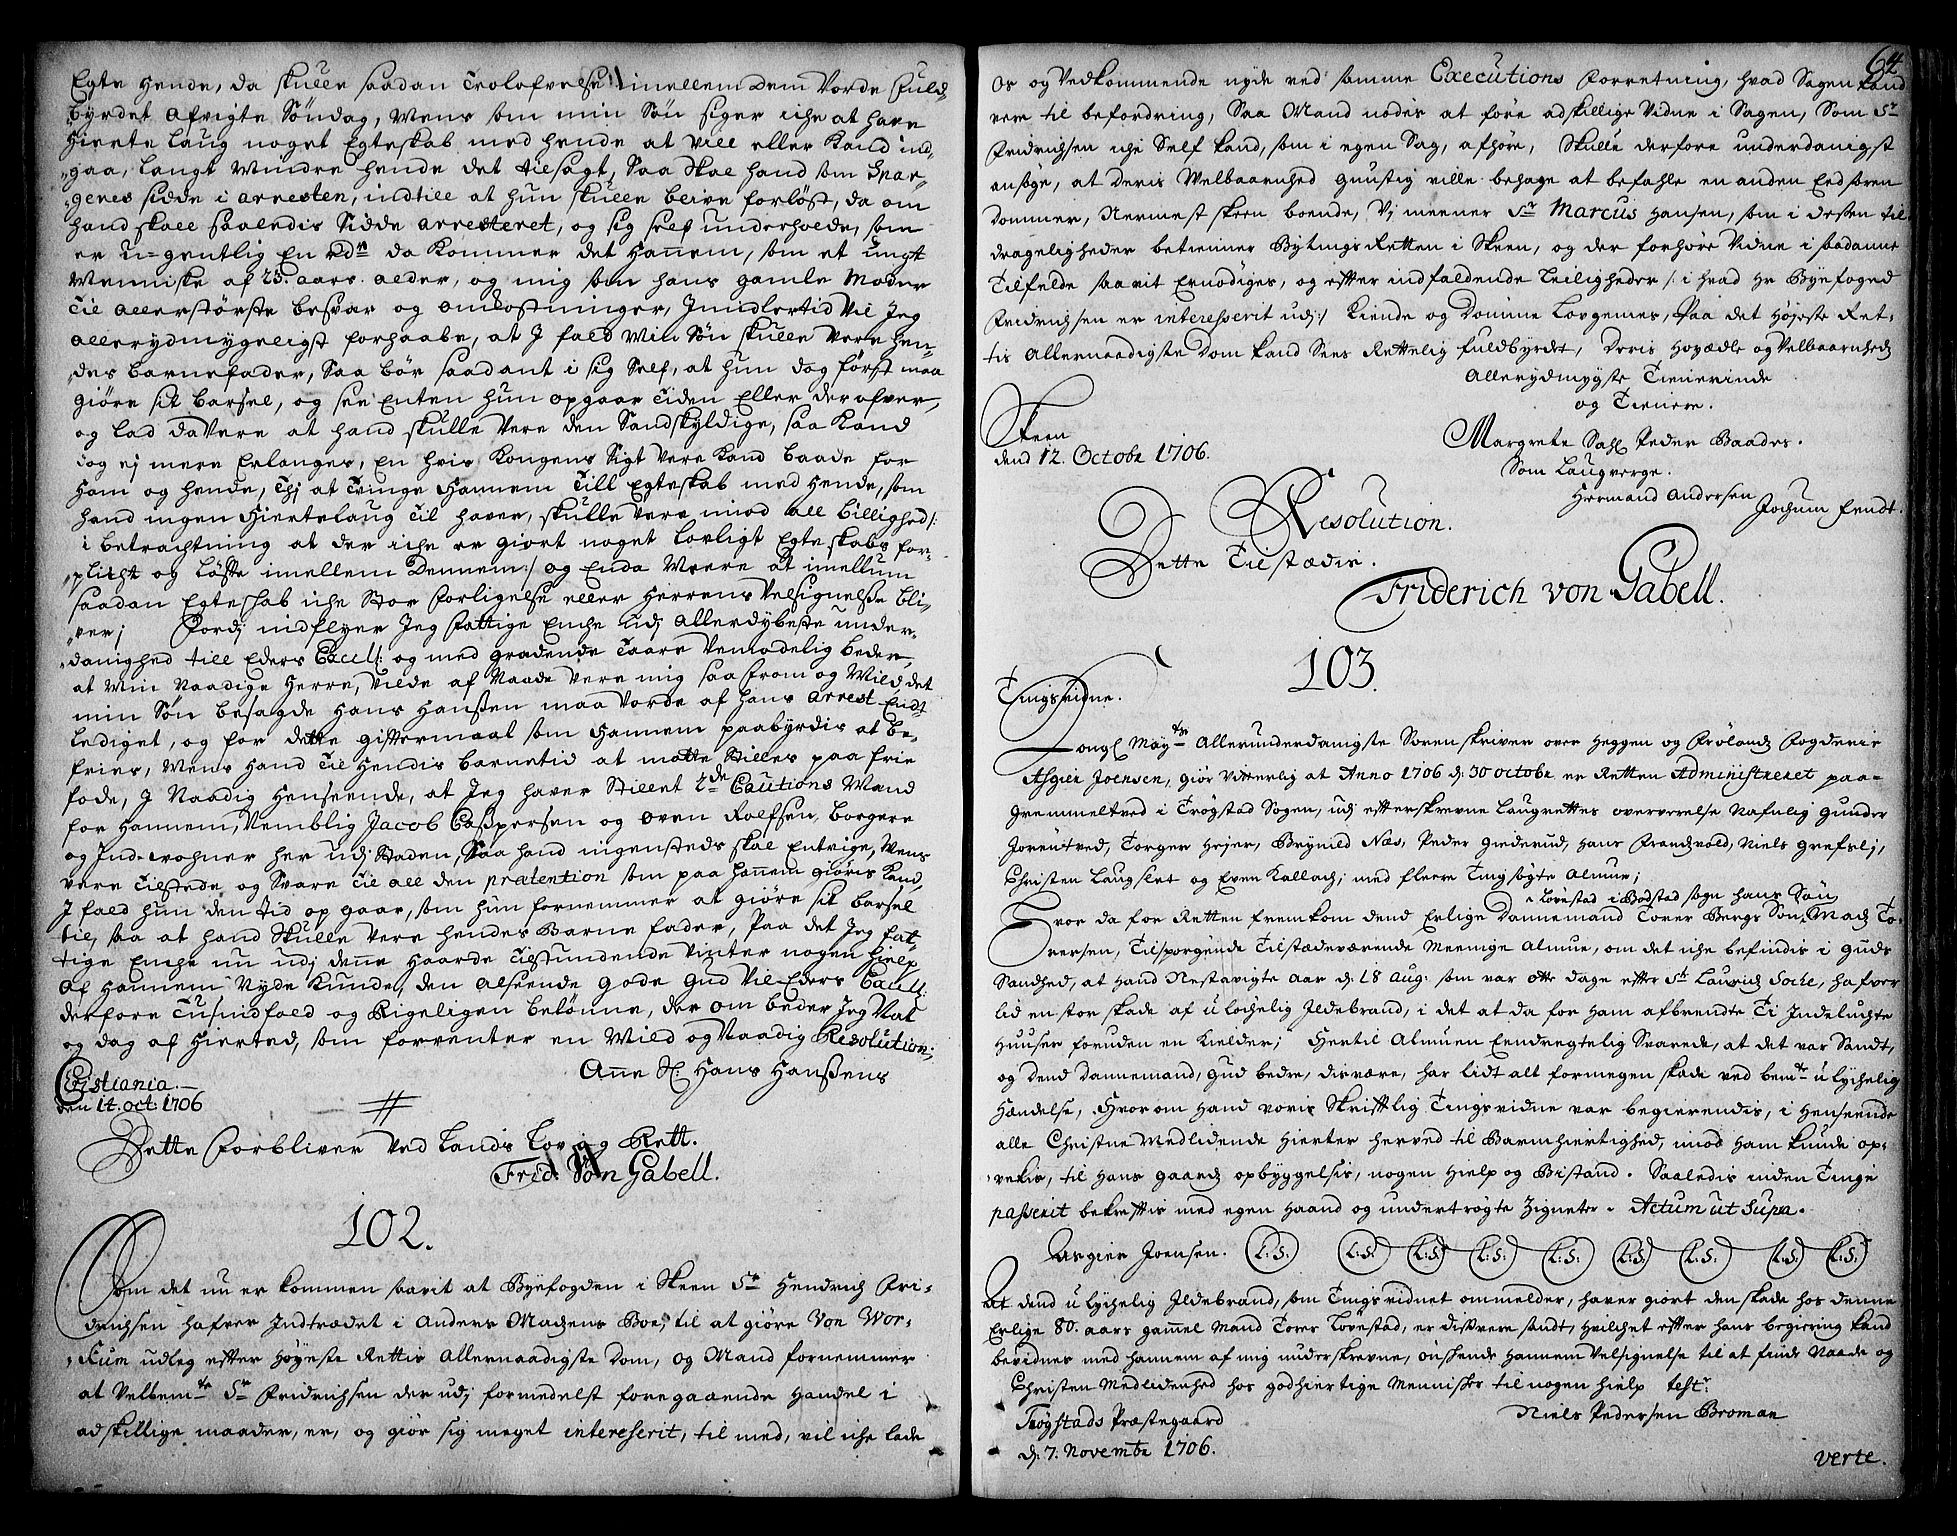 Egte Hende, da skulle saadan Trolofvelse imellem Dem Vorde fuld-
byrdet Afvigte Söndag, Mens som min Sön siger iche at have
Hierte Laug noget Egteskab med hende at Vill eller Kand ind-
gaa, Langt Mindre hende det tilsagt, Saa Skal hand som
sidde i arresten, indtill at hun skulle blive forlöst, da om
hand skall saaledis Sidde arresteret, og sig self underholde, som
er U-gentlig En da Kommer det Hannem, som et ungt
Menniske af 25. aars alder, og mig som hans gamle Moder
til allerstörste besvær og omkostninger, Imidlertid Vil Jeg
allerydmygeligst forhaabe, at I fald Min Sön skulle Vere Hen-
des barnefader, Saa bör saadant i sig Self, at hun dog först maa
giöre sit barsel, og see Enten hun opgaar Tiden Eller derofver,
og lad da Vere at hand skulle Vere den Sandskyldige, saa Kand
dog ej mere Erlanges, En hvis Kongens Sigt Vere Kand baade for
Ham og hende, Thj at Tvinge Hannem Till Egteskab med Hende, som
hand ingen Hiertelaug Til haver, skulle Vere imod all billighed /:
i betrachtning at der iche er giort noget lovligt Egteskabs for-
plicht og Löffte imellem Dennem :/ og Enda Meere at imellum
saadan Egteskab iche Stor forligelse eller Herrens Velsignelse bli-
ver; Fordj indflyer Jeg fattige Enche udj Allerdybeste under-
danighed till Eders Excell: og med grædende Taare Vemodelig beder,
at Min Naadige Herre, vilde af Naade Vere mig saa from og Mild, det
min Sön besagde Hans Hanßen maa Vorde af hans Arrest Endt-
lediget, og for dette gifftermaal som Hannem paabyrdis at be-
fries, Mens Hand til Hendis barnetid at motte Stilles paa frie
fode, I Naadig Henseende, at Jeg haver Stillet 2de Cautions Mænd
for Hannem, Nemblig Jacob Caßpersen og Oven Rolfsen, borgere
og Indwohner her udj Staden, Saa hand ingensteds skal Entvige, Mens
vere tilstede og Svare til all den prætention som paa hannem giöris Kand
I fald hun den tid opgaar, som hun fornemmer at giöre sit barsel
til, saa at hand Skulle Vere hendes Barne fader, Paa det Jeg fat-
tige Enche nu udj denne Haarde tilstundende Vinter nogen hielp
Af Hannem Nyde Kunde, den alseende gode Gud Vil Eders Excell:
derfore Tusindfold og Rigeligen belönne, der om beder Jeg Nat
og dag af Hierted, som forventer en Mild og Naadig Resolution;
Anne Sl: Hans Hanßens
Cristiania.
den 14. oct: 1706
Dette forbliver Ved Lands Lov og Rett.
Frid: von Gabell.
102.
Som det nu er kommen saavit at Byefogden i Skeen Sr Hendrich Fri-
drichsen hafver Indtrædet i Anders Madsens Boe, til at giöre Von Wor-
kum udleg efter Höyeste Rettis Allernaadigste Dom, og Mand fornemmer
at Velbemte Sr Fridrichsen der udj formedelst foregaaende Handel i
adskillige maader, er, og giör sig meget interesserit, til med, vil iche lade
64
os og Vedkommende nyde ved samme Executions Forretning, hvad Sagen kand
vere til befordring, Saa Mand nödes at före adskillige Vidne i Sagen, Som Sr
Fridrichsen iche Self kand, som i egen Sag, afhöre, Skulle derfore underdanigst
ansöge, at Deris Welbaarnhed gunstig ville behage at befahle en anden Eedsoren
Dommer, Nermest skeen boende, Vj meener Sr Marcus Hansen, som i dessen til-
drageligheder betienner Bytings Retten i Skeen, og der forhöre Vidne i saadanne
Tilfelde saavit Ernödiges, og effter indfaldende Leiligheder /: i hvad Hr Byefoged
Fridrichsen er interesserit udj :/ Kiende og Dömme Lovgemes, Paa det Höjeste Ret-
tis Allernaadigste Dom kand Sees Rettelig fuldbyrdet, Deris Hoyædle og Velbaarnheds
Allerydmygste Tienerinde
og Tienere.
Skeen
dend 12. Octobr 1706.
Margrete Sahl Peder Baades.
Som Laugverge.
Hermand Andersen Jochum Fendt.
Resolution.
Dette Tilstædis.
Friderich von Gabell.
103.
Tingsvidne.
Kongl Maytts Allerunderdanigste Sorenskriver over Heggen og Frölands Fogderie
Asgier Joensen, Giör Vitterlig at Anno 1706 d: 30 octobr er Retten Administreret paa
Gremmeltved i Trögstad Sogen, udj efterskrevne Laugrettes oververelse Nafnlig Gunder
Jorentved, Torger Hejer, Brynild Næs, Peder Giederud, Hans Frandsvold, Niels Grefslj,
Christen Laugslet og Even Kallach; med fleere Tingsögte Almue;
Lovestad i Bodstad sogn hans Sön
Hvor da for Retten fremkom dend Erlige Dannemand Torer Bergs Sön, Mads To-
rersen, Tilsporgende Tilstædeværende Meenige Almue, om det iche befindis i Guds
Sandhed, at Hand Nestavigte Aar d: 18 Aug: som var otte dage effter St Laurids Soche, hafver
lid en stor skade af ulochelig Ildebrand, i det at da for Ham afbrendte Ti Indeluchte
Huuser foruden en Kielder; Hertil Almuen Eendregtelig Svarede, at det var Sandt,
og Dend Dannemand, Gud bedre, disvære, har lidt alt formegen skade ved bemte ulychelig
Hændelse, Hvorom Hand voris Skrifftlig Tingsvidne var begierendis, i Henseende
alle Christne Medlidende Hierter herved til Barmhiertighed, imod Ham kunde op-
vekis, til Hans Gaards opbyggelsis, nogen Hielp og Bistand. Saaledis inden Tinge
passerit bekrefftis med egen Haand og undertrögte Zigneter. Actum ut Supra.
Asgier Joensen. L:S: L:S: L:S: L:S: L:S: L:S: L:S: L:S: L:S:
At dend ulychelig Ildebrand, som Tingsvidnet ommelder, haver giort den skade hos denne
Erlige 80. aars gammel Mand Torer Lovestad, er dissvere sandt, hvilchet effter hans begiering kand
bevidnes med hannem af mig underskrevne, önskende Hannem Velsignelse til at finde Naade og
Christen Medlidenhed hos godhiertige Mennisker til nogen hielp testr.
Trögstads Præstegaard
d: 7: Novembr 1706.
Niels Pedersen Broman
verte.